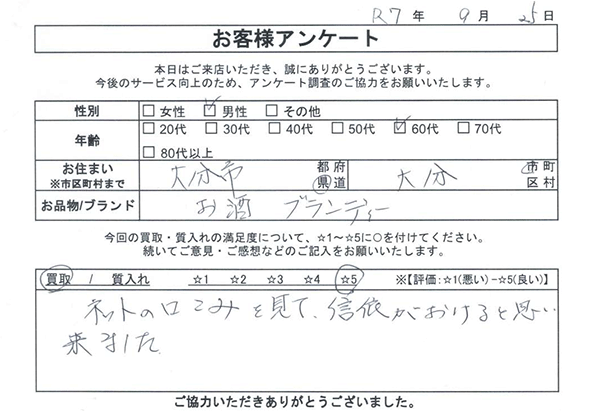 R7年 9月 25日
お客様アンケート
本日はご来店いただき、誠にありがとうございます。
今後のサービス向上のため、アンケート調査のご協力をお願いいたします。
性別 □女性 ☑男性 □その他
年齢 □20代 □30代 □40代 □50代 ☑60代 □70代
□80代以上
お住まい 大分市 都府 大分 市町
※市区町村まで 県道 区村
お品物/ブランド お酒 ブランディー
今回の買取・質入れの満足度について、☆1～☆5に○を付けてください。
続いてご意見・ご感想などのご記入をお願いいたします。
買取 / 質入れ ☆1 ☆2 ☆3 ☆4 ☆5 ※【評価:☆1(悪い)−☆5(良い)】
ネットの口こみを見て、信依がおけると思い
来ました
ご協力いただきありがとうございました。